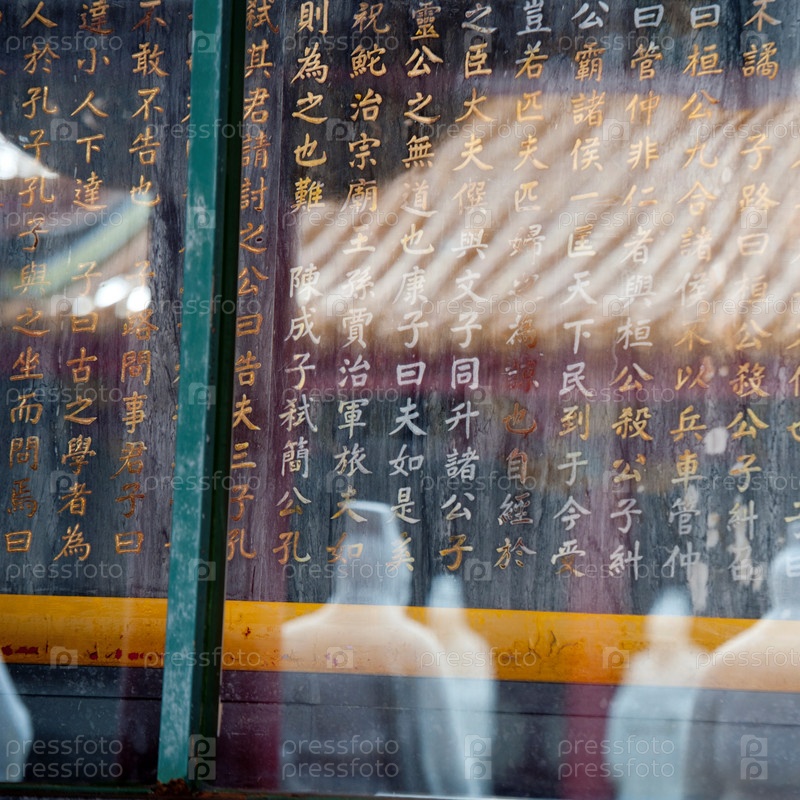 不譎 子路曰桓公殺公子糾召
曰桓公九合諸侯不以兵車管仲
曰管仲非仁者與桓公殺公子糾
公霸諸侯一匡天下民到于今受
豈若匹夫匹婦之為諒也自經於
之臣大夫僎與文子同升諸公子
靈公之無道也康子曰夫如是奚
祝鮀治宗廟王孫賈治軍旅夫如
則為之也難 陳成子弒簡公孔
弒其君請討之公曰告夫三子孔
不敢不告也 子路問事君子曰
達小人下達 子曰古之學者為
人於孔子孔子與之坐而問焉曰
pressfoto